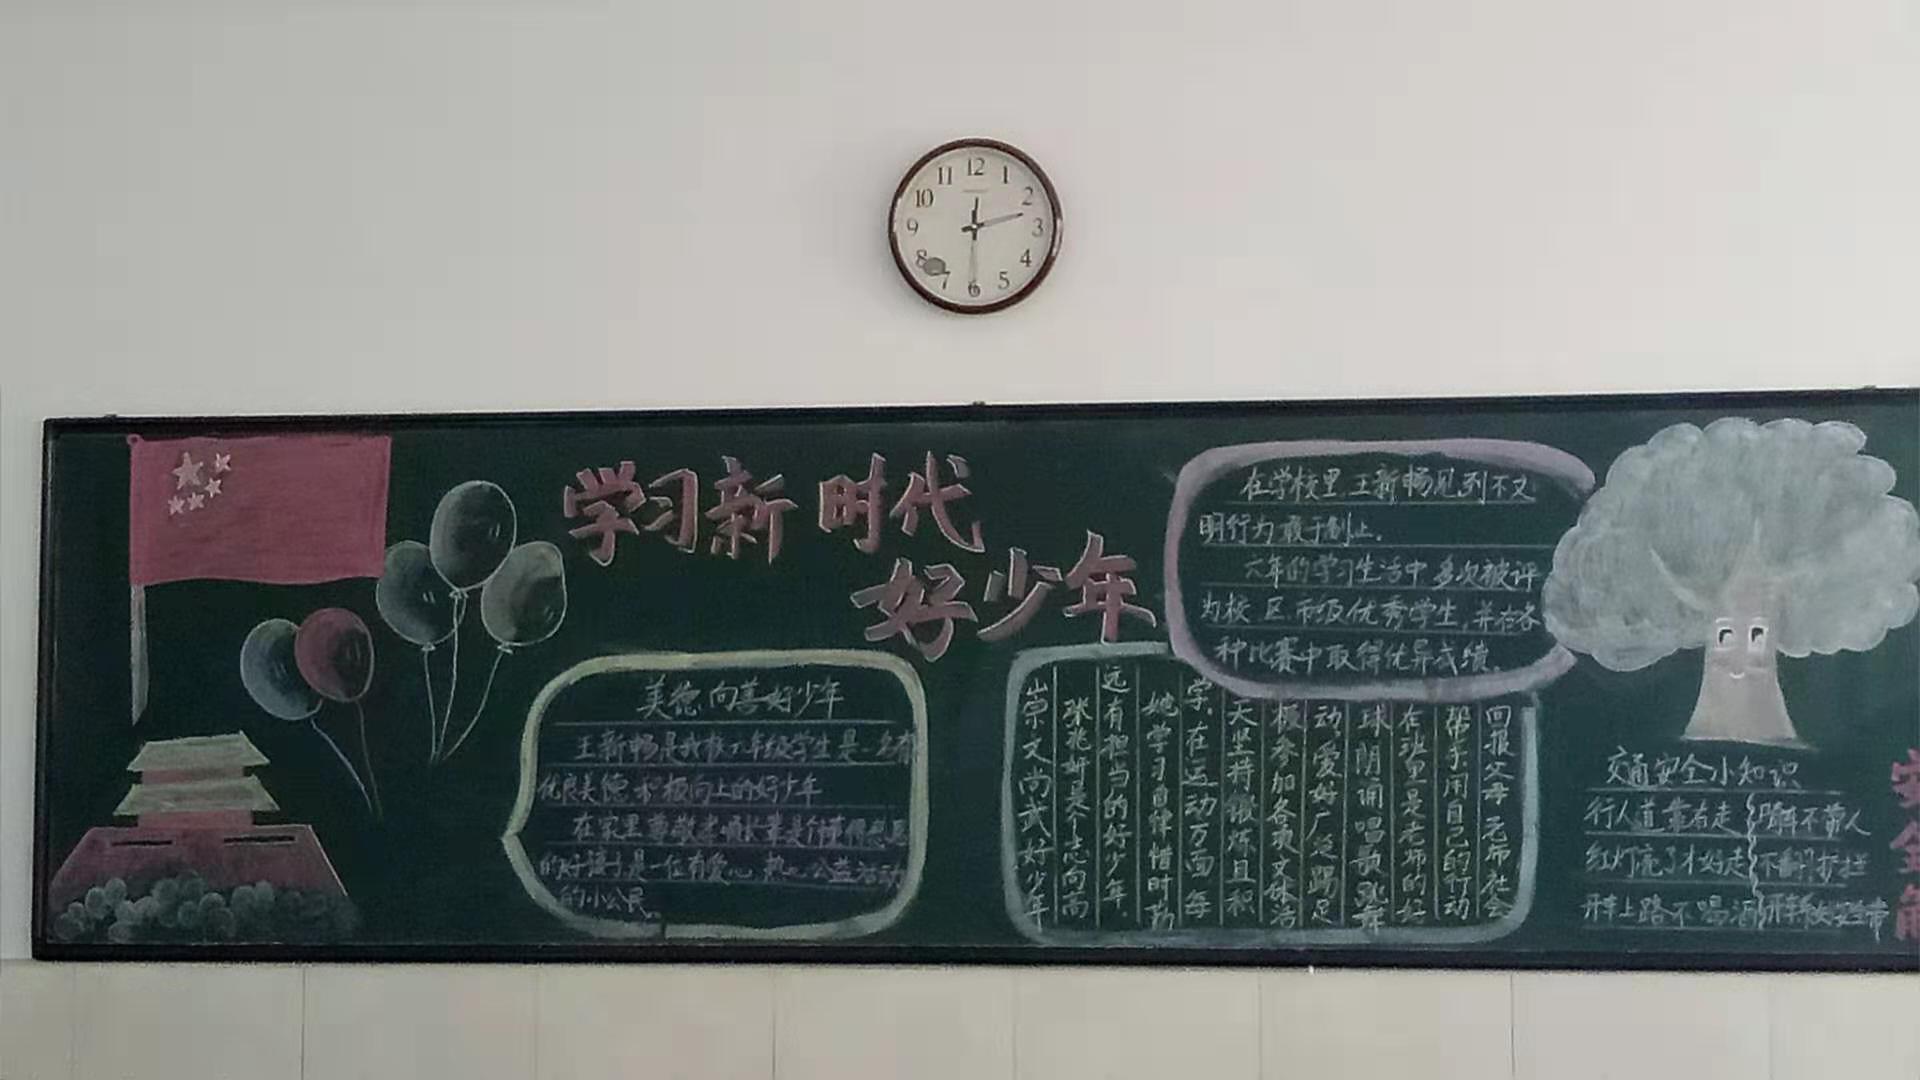 12
11
1
10
2
9
3
8
4
7
5
6
学习新时代
好少年
在学校里,王新畅见到不文
明行为敢于制止。
六年的学习生活中多次被评
为校区市级优秀学生,并在各
种比赛中取得优异成绩。
美德向善好少年
王新畅是我校六年级学生是一名有
优良美德积极向上的好少年
在家里尊敬老
的好孩子是一位有爱心热心公益活动
的小公民。
崇文尚武好少年
张兆妍是个志向高
远有担当的好少年。
她学习自律惜时勤
学。在运动方面每
天坚持锻炼且积
极参加各项文体活
动爱好广泛踢足
球阴闹唱歌跳舞
在班里是老师的好
帮手用自己的行动
回报父母老师社会
交通安全小知识
行人道靠右走
红灯亮了才好走
开车上路不喝酒
不翻护栏
安
全